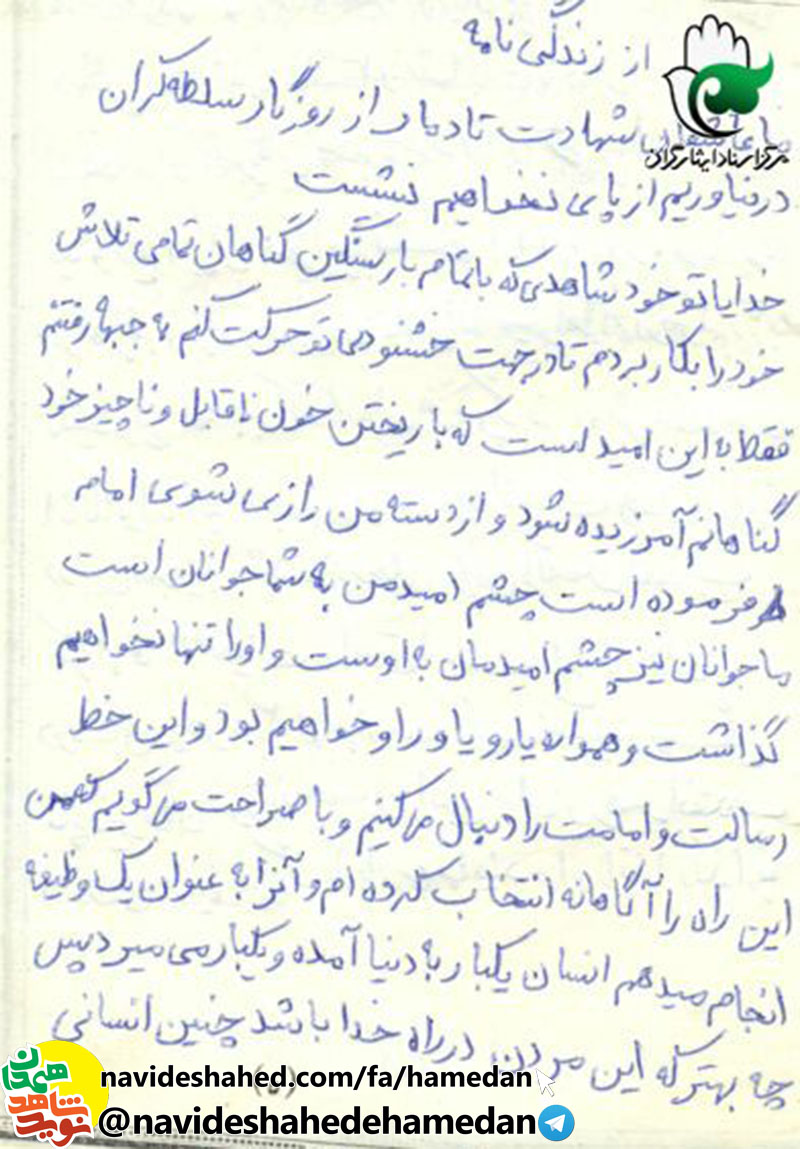 از زندگی نامه
مرکز اسناد ایثارگران
ما عاشقان شهادت تا دمار از روزگار سلطه گران
در نیاوریم از پای نخواهیم نشست
خدایا تو خود شاهدی که با تمام بار سنگین گناهان تمامی تلاش
خود را بکار بردم تا در جهت خشنودی تو حرکت کنم به جبهه رفتنم
فقط به این امید است که با ریختن خون ناقابل و ناچیز خود
گناهانم آمرزیده شود و از دسته من رازی شوی امام
فرموده است چشم امید من به شما جوانان است
ما جوانان نیز چشم امیدمان به اوست و او را تنها نخواهیم
گذاشت و همواره یار و یاور او خواهیم بود و این خط
رسالت و امامت را دنبال میکنیم و با صراحت می گویم که من
این راه را آگاهانه انتخاب کرده ام و آنرا به عنوان یک وظیفه
انجام میدهم انسان یکبار به دنیا آمده و یکبار می میرد پس
چه بهتر که این مردن در راه خدا باشد چنین انسانی
(۵)
نوید شاهد همدان
navideshahed.com/fa/hamedan
@navideshahedehamedan